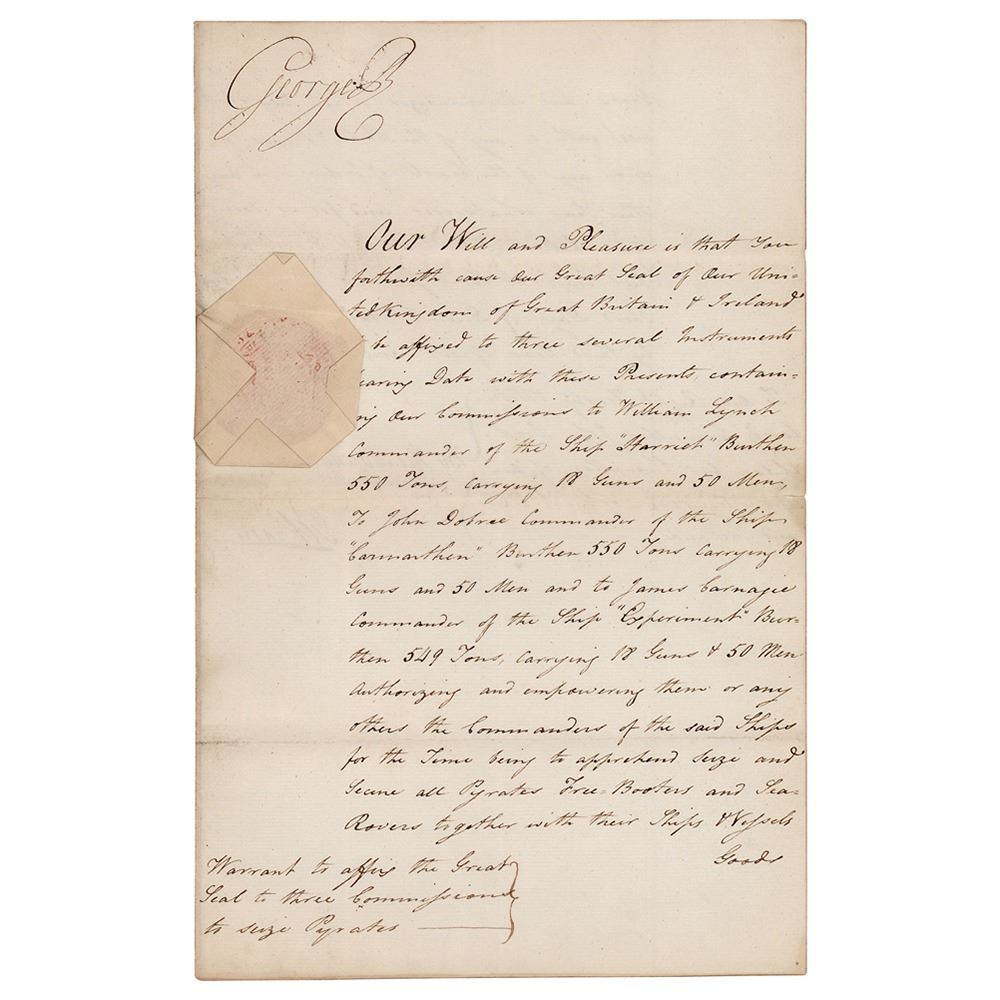 George R
Our Will and Pleasure is that You
forthwith cause our Great Seal of Our Uni=
ted Kingdom of Great Britain & Ireland
be affixed to three several Instruments
bearing Date with these Presents, contain=
ing Our Commissions to William Lynch
Commander of the Ship "Harriet" Burthen
550 Tons, carrying 18 Guns and 50 Men,
To John Dobree Commander of the Ship
"Carmarthen" Burthen 550 Tons carrying 18
Guns and 50 Men and to James Carnagie
Commander of the Ship "Experiment" Bur=
then 549 Tons, carrying 18 Guns & 50 Men
Authorizing and empowering them or any
others the Commanders of the said Ships
for the Time being to apprehend seize and
Secure all Pyrates Free=Booters and Sea=
Rovers together with their Ships & Vessels
Goods
Warrant to affix the Great
Seal to three Commissions
to seize Pyrates